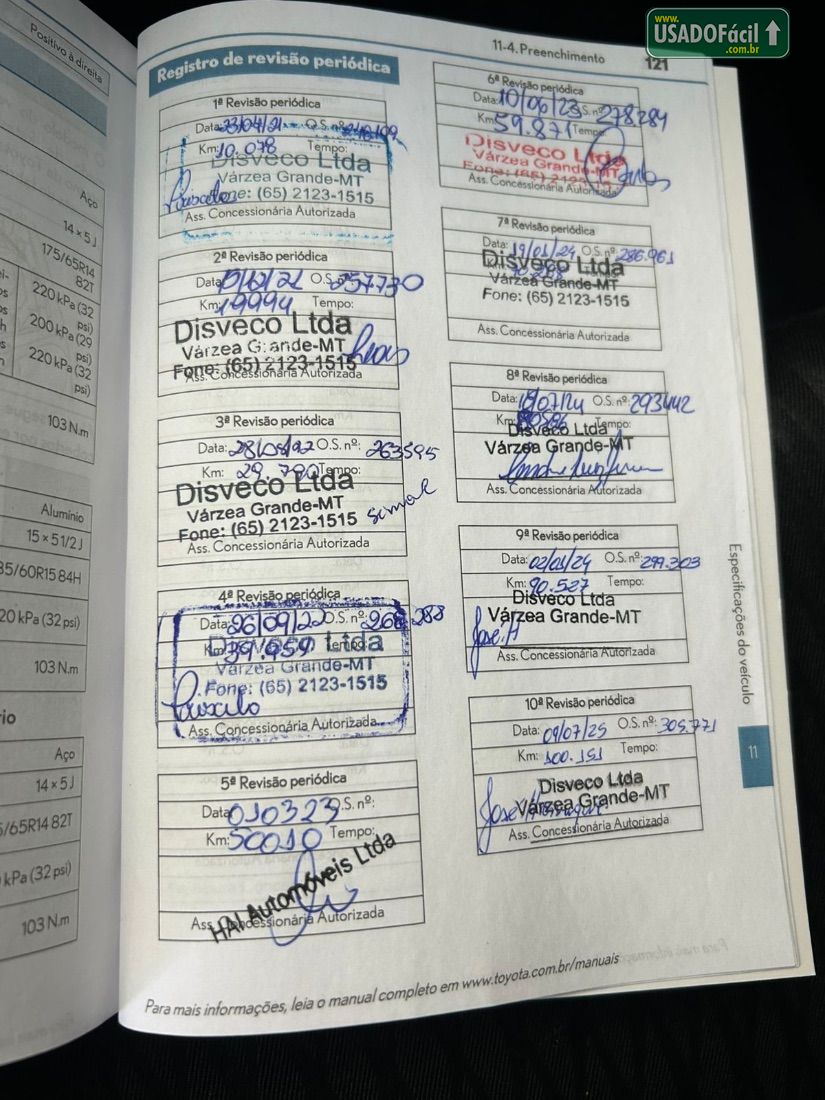 Positivo à direita
Aço
14 x 5 J
175/65R14
82T
220 kPa (32
psi)
200 kPa (29
psi)
220 kPa (32
psi)
103 N.m
Alumínio
15 x 5 1/2 J
85/60R15 84H
20 kPa (32 psi)
103 N.m
Aço
14 x 5 J
5/65R14 82T
kPa (32 psi)
103 N.m
www.
USADOFácil
.com.br
11-4. Preenchimento
121
Registro de revisão periódica
1ª Revisão periódica
Data: 23/04/21 O.S. nº:
Km: 10.078 Tempo:
Disveco Ltda
Várzea Grande-MT
Fone: (65) 2123-1515
Ass. Concessionária Autorizada
2ª Revisão periódica
Data: O.S. nº: 257730
Km: 19994 Tempo:
Disveco Ltda
Várzea Grande-MT
Fone: (65) 2123-1515
Ass. Concessionária Autorizada
3ª Revisão periódica
Data: O.S. nº: 263595
Km: 29.790 Tempo:
Disveco Ltda
Várzea Grande-MT
Fone: (65) 2123-1515
Ass. Concessionária Autorizada
4ª Revisão periódica
Data: 26/09/22 O.S. nº: 268.288
Km: 39.959 Tempo:
Disveco Ltda
Várzea Grande-MT
Fone: (65) 2123-1515
Ass. Concessionária Autorizada
5ª Revisão periódica
Data: 010323 O.S. nº:
Km: 50010 Tempo:
HAI Automóveis Ltda
Ass. Concessionária Autorizada
6ª Revisão periódica
Data: 10/06/23 O.S. nº 278.284
Km: 59.871 Tempo:
Disveco Ltda
Várzea Grande-MT
Fone: (65) 2123-1515
Ass. Concessionária Autorizada
7ª Revisão periódica
Data: 19/01/24 O.S. nº: 286.961
Km:
Disveco Ltda
Várzea Grande-MT
Fone: (65) 2123-1515
Ass. Concessionária Autorizada
8ª Revisão periódica
Data: 18/07/24 O.S. nº: 293442
Km: Tempo:
Disveco Ltda
Várzea Grande-MT
Ass. Concessionária Autorizada
9ª Revisão periódica
Data: O.S. nº: 299.303
Km: 90.527 Tempo:
Disveco Ltda
Várzea Grande-MT
Ass. Concessionária Autorizada
10ª Revisão periódica
Data: 09/07/25 O.S. nº: 305.771
Km: 100.151 Tempo:
Disveco Ltda
Várzea Grande-MT
Ass. Concessionária Autorizada
Especificações do veículo
11
Para mais informações, leia o manual completo em www.toyota.com.br/manuais